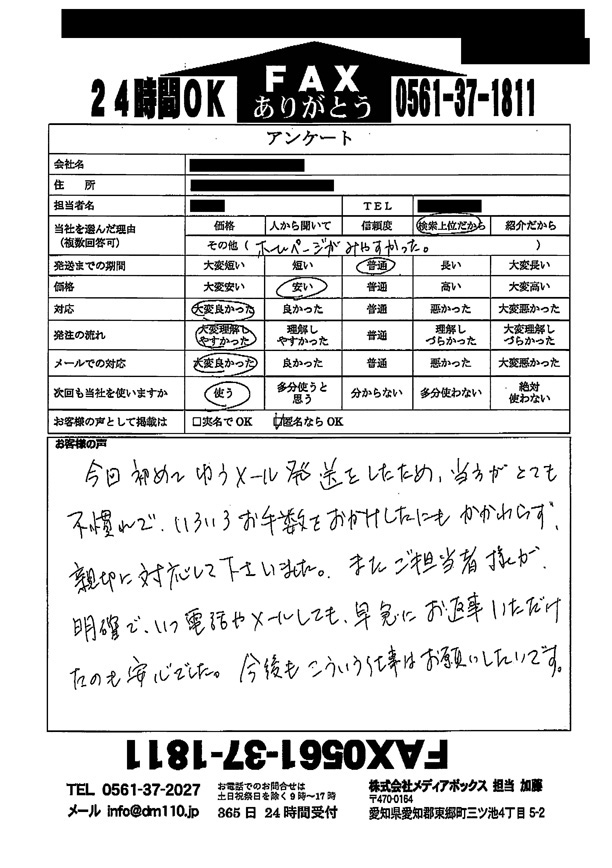 24時間OK
FAX
ありがとう
0561-37-1811
アンケート
会社名
住 所
担当者名 TEL
当社を選んだ理由
(複数回答可)
価格 人から聞いて 信頼度 検索上位だから 紹介だから
その他( ホームページがみやすかった。 )
発送までの期間 大変短い 短い 普通 長い 大変長い
価格 大変安い 安い 普通 高い 大変高い
対応 大変良かった 良かった 普通 悪かった 大変悪かった
発注の流れ 大変理解しやすかった 理解しやすかった 普通 理解しづらかった 大変理解しづらかった
メールでの対応 大変良かった 良かった 普通 悪かった 大変悪かった
次回も当社を使いますか 使う 多分使うと思う 分からない 多分使わない 絶対使わない
お客様の声として掲載は □実名でOK □匿名ならOK
お客様の声
今回初めてゆうメール発送をしたため、当方がとても
不慣れで、いろいろお手数をおかけしたにもかかわらず、
親切に対応して下さいました。またご担当者様が、
明確で、いつ電話やメールしても、早急にお返事いただけ
たのも安心でした。今後もこういう仕事はお願いしたいです。
FAX0561-37-1811
TEL 0561-37-2027
メール info@dm110.jp
お電話でのお問合せは
土日祝祭日を除く9時〜17時
365日 24時間受付
株式会社メディアボックス 担当 加藤
〒470-0164
愛知県愛知郡東郷町三ツ池4丁目5-2